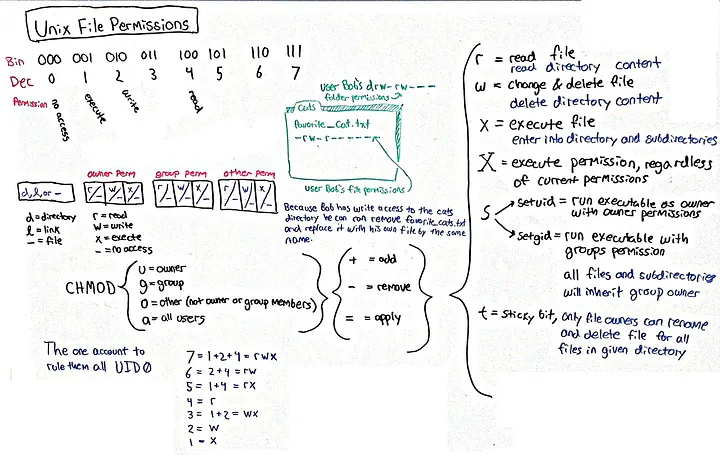 Unix File Permissions
Bin 000 001 010 011 100 101 110 111
Dec 0 1 2 3 4 5 6 7
Permission no access execute write read
User Bob's drw-rw---
folder permissions
Cats
favorite_cat.txt
-rw-r------
user Bob's file permissions
owner perm group perm other perm
d, l, or - r/- w/- x/- r/- w/- x/- r/- w/- x/-
d = directory r = read
l = link w = write
- = file x = execte
- = no access
Because Bob has write access to the cats
directory he can can remove favorite_cats.txt
and replace it with his own file by the same
name.
CHMOD
u = owner
g = group
o = other (not owner or group members)
a = all users
+ = add
- = remove
= = apply
r = read file
read directory content
w = change & delete file
delete directory content
x = execute file
enter into directory and subdirectories
X = execute permission, regardless
of current permissions
s
setuid = run executable as owner
with owner permissions
setgid = run executable with
groups permission
all files and subdirectories
will inherit group owner
t = sticky bit, only file owners can rename
and delete file for all
files in given directory
The one account to
rule them all UID0
7 = 1+2+4 = rwx
6 = 2+4 = rw
5 = 1+4 = rx
4 = r
3 = 1+2 = wx
2 = w
1 = x